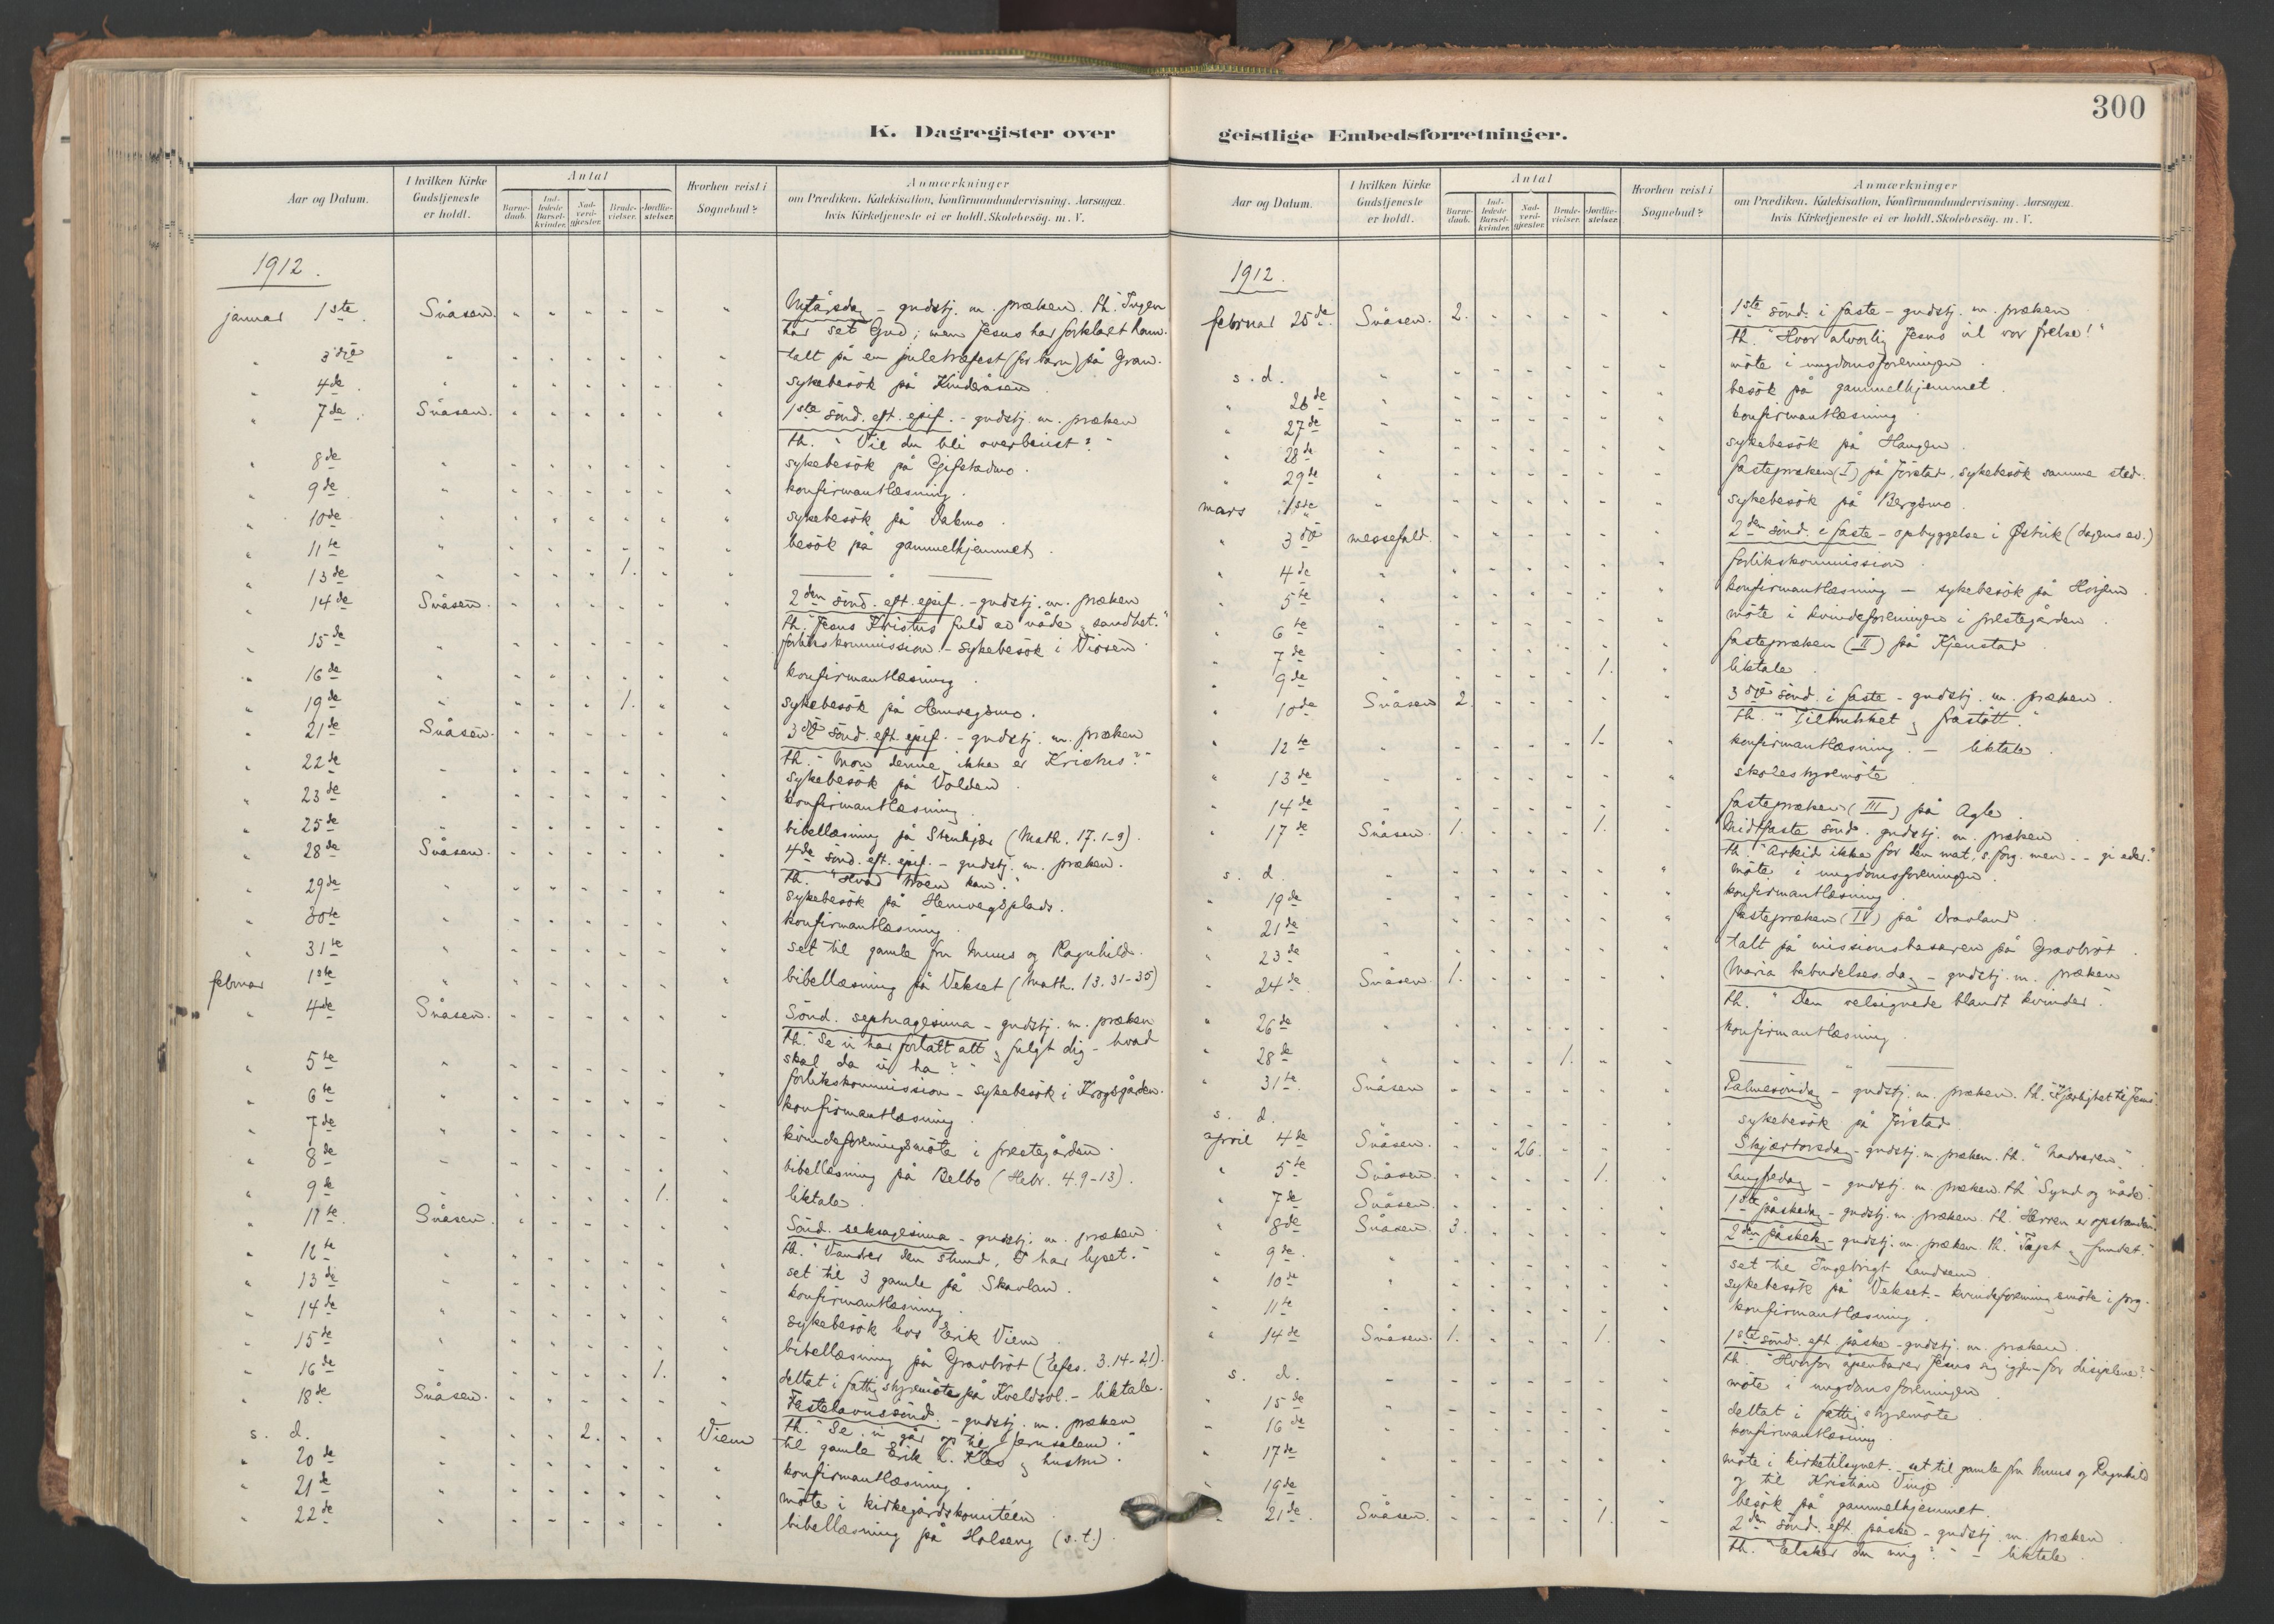 300
K. Dagregister over geistlige Embedsforretninger.
Aar og Datum.
I hvilken Kirke Gudstjeneste er holdt.
Antal
Barne-daab.
Ind-ledede Barsel-kvinder.
Nad-verd-gjæster.
Brude-vielser.
Jordfæ-stelser.
Hvorhen reist i Sognebud?
Anmærkninger
om Prædiken, Katekisation, Konfirmandundervisning. Aarsagen
hvis Kirketjeneste ei er holdt. Skolebesög. m. V.
1912.
januar 1ste Snåsen. Nytårsdag - gudstj. m. præken. th. "Ingen
har set Gud; men Jesus har forklaret ham.
" 3die talt på en juletræfest (for barn) på Gran.
" 4de sykebesök på Kinderåsen
" 7de Snåsen. 1ste sönd. eft. epif. - gudstj. m. præken
th. "Vil du bli overbevist?"
" 8de sykebesök på Gifstadmo.
" 9de konfirmantlæsning.
" 10de sykebesök på Dalmo.
" 11te besök på gammelhjemmet.
" 13de 1.
" 14de Snåsen. 2den sönd. eft. epif. - gudstj. m. præken
th. "Jesus Kristus fuld av nåde og sandhet."
" 15de forlikskommission - sykebesök i Viosen
" 16de konfirmantlæsning.
" 19de 1. sykebesök på Hemvegsmo.
" 21de Snåsen. 3die sönd. eft. epif. - gudstj. m. præken
th. "Mon denne ikke er Kristus?"
" 22de sykebesök på Volden.
" 23de konfirmantlæsning
" 25de bibellæsning på Stenkjær (Math. 17.1-9).
" 28de Snåsen. 4de sönd. eft. epif. - gudstj. m. præken.
th. "Hvad troen kan."
" 29de sykebesök på Hemvegsplads.
" 30te konfirmantlæsning.
" 31te set til gamle fru Muus og Ragnhild.
februar 1ste bibellæsning på Vekset (Math. 13.31-35)
" 4de Snåsen. Sönd. septuagesima - gudstj. m. præken
th. "Se vi har forlatt alt og fulgt dig - hvad
skal da vi ha?"
" 5te forlikskommission - sykebesök i Krogsgården.
" 6te konfirmantlæsning.
" 7de kvindeforeningsmöte i prestegården.
" 8de bibellæsning på Belbo (Hebr. 4.9-13).
" 9de 1. liktale.
" 11te Snåsen. Sönd. seksagesima - gudstj. m. præken
th. "Vandrer den stund, I har lyset."
" 12te set til 3 gamle på Skavlan.
" 13de konfirmantlæsning.
" 14de sykebesök hos Erik Viem
" 15de bibellæsning på Gravbröt (Efes. 3.14-21).
" 16de 1. deltat i fattigstyremöte på Kveldsol. - liktale.
" 18de Snåsen. Fastelavnssönd. - gudstj. m. præken
th. "Se, vi går op til Jerusalem."
s. d. 2. Viem til gamle Erik L. Kleo og hustru.
" 20de konfirmantlæsning.
" 21de möte i kirkegårdskomitéen
" 22de bibellæsning på Holseng (s.t.)
1912.
februar 25de Snåsen. 2. 1ste sönd. i faste - gudstj. m. præken
th. "Hvor alvorlig Jesus vil vor frelse!"
s. d. möte i ungdomsforeningen.
" 26de besök på gammelhjemmet.
" 27de konfirmantlæsning.
" 28de sykebesök på Haugen.
" 29de fastepræken (I) på Jörstad, sykebesök samme sted.
mars 1ste sykebesök på Bergsmo.
" 3die messefald. 2den sönd. i faste - opbyggelse i Østvik (dagens ev.)
" 4de forlikskommission.
" 5te konfirmantlæsning - sykebesök på Horjem
" 6te möte i kvindeforeningen i prestegården.
" 7de fastepræken (II) på Kjenstad
" 9de 1. liktale
" 10de Snåsen 2. 3die sönd. i faste - gudstj. m. præken.
th. "Tiltrukket og frastött."
" 12te 1. konfirmantlæsning. - liktale.
" 13de skolestyremöte
" 14de fastepræken (III) på Agle.
" 17de Snåsen. 1. 1. Midtfaste sönd. gudstj. m. præken
th. "Arbeid ikke for den mat, s. forg. men -- gi eder."
s. d. möte i ungdomsforeningen.
" 19de konfirmantlæsning.
" 21de fastepræken (IV) på Dravland
" 23de talt på missionsbasaren på Gravbröt.
" 24de Snåsen. 1. Maria bebudelses dag - gudstj. m. præken
th. "Den velsignede blandt kvinder."
" 26de konfirmantlæsning.
" 28de 1.
" 31te Snåsen Palmesöndag - gudstj. m. præken. th. "Kjærlighet til Jesus"
s. d. sykebesök på Jörstad
april 4de Snåsen. 26. Skjærtorsdag - gudstj. m. præken. th. "Nadveren".
" 5te Snåsen. 1. Langfredag - gudstj. m. præken. th "Synd og nåde."
" 7de Snåsen. 1ste påskedag - gudstj. m. præken. th. "Herren er opstanden."
" 8de Snåsen. 3. 2den påskedag - gudstj. m. præken. th. "Taget og fundet."
" 9de set til Ingebrigt Landsem
" 10de sykebesök på Vekset. - kvindeforeningsmöte i prg.
" 11te konfirmantlæsning.
" 14de Snåsen. 1. 1. 1ste sönd. eft. påske - gudstj. m. præken.
th. "Hvorfor åpenbarer Jesus sig igjen for disiplene?"
s. d. möte i ungdomsforeningen
" 15de deltat i fattigstyremöte
" 16de konfirmantlæsning
" 17de möte i kirketilsynet. - set til gamle fru Muus og Ragnhild
og til Kristian Vinje
" 19de besök på gammelhjemmet.
" 21de Snåsen. 1. 2den sönd. eft. påske - gudstj. m. præken.
th. "Elsker du mig?" - liktale.